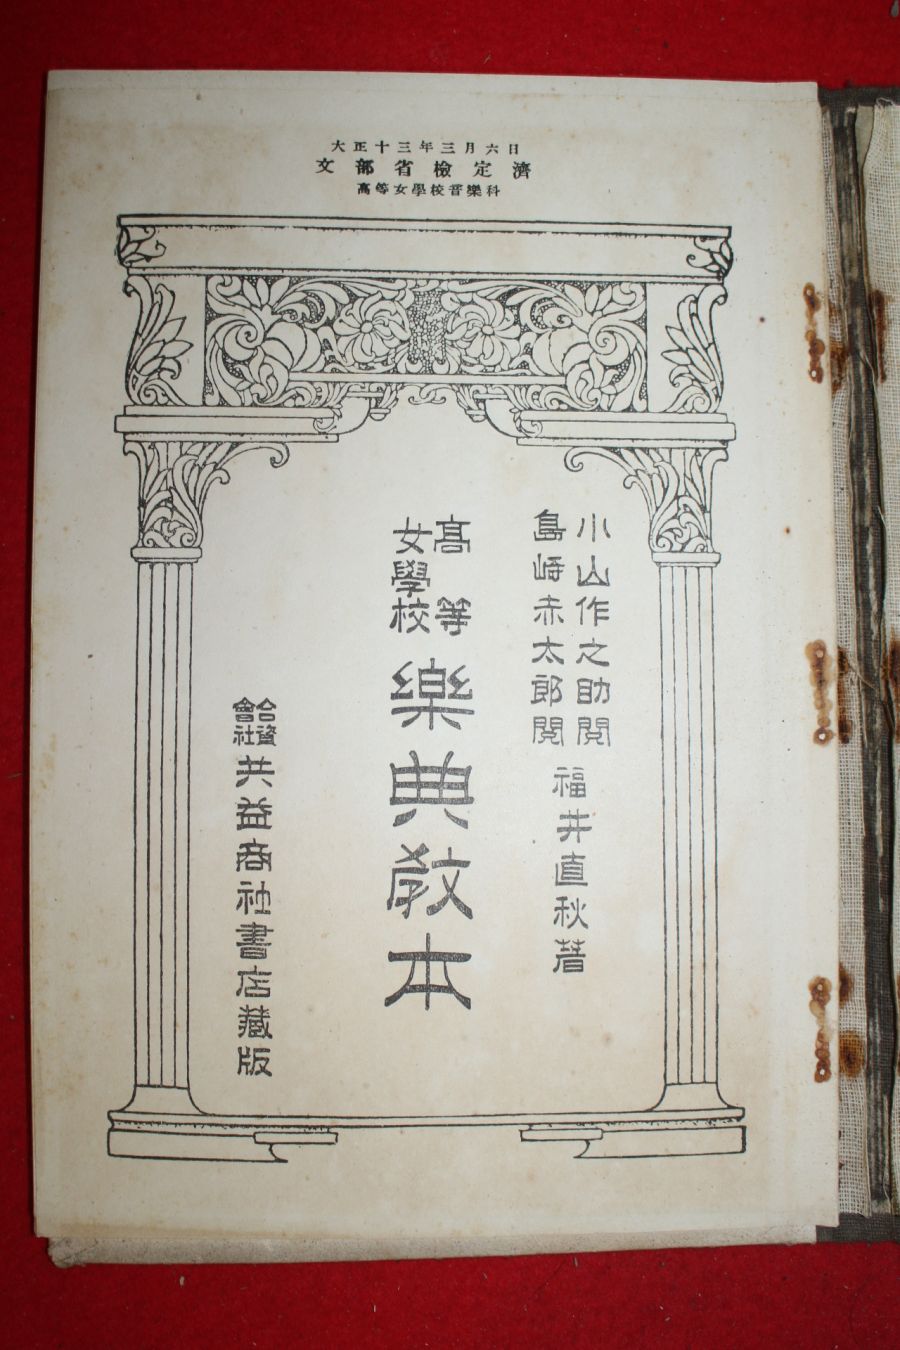 大正十三年三月六日
文部省檢定濟
高等女學校音樂科
小山作之助閲
島崎赤太郎閲
福井直秋著
高等
女學校
樂典教本
合資
會社
共益商社書店藏版